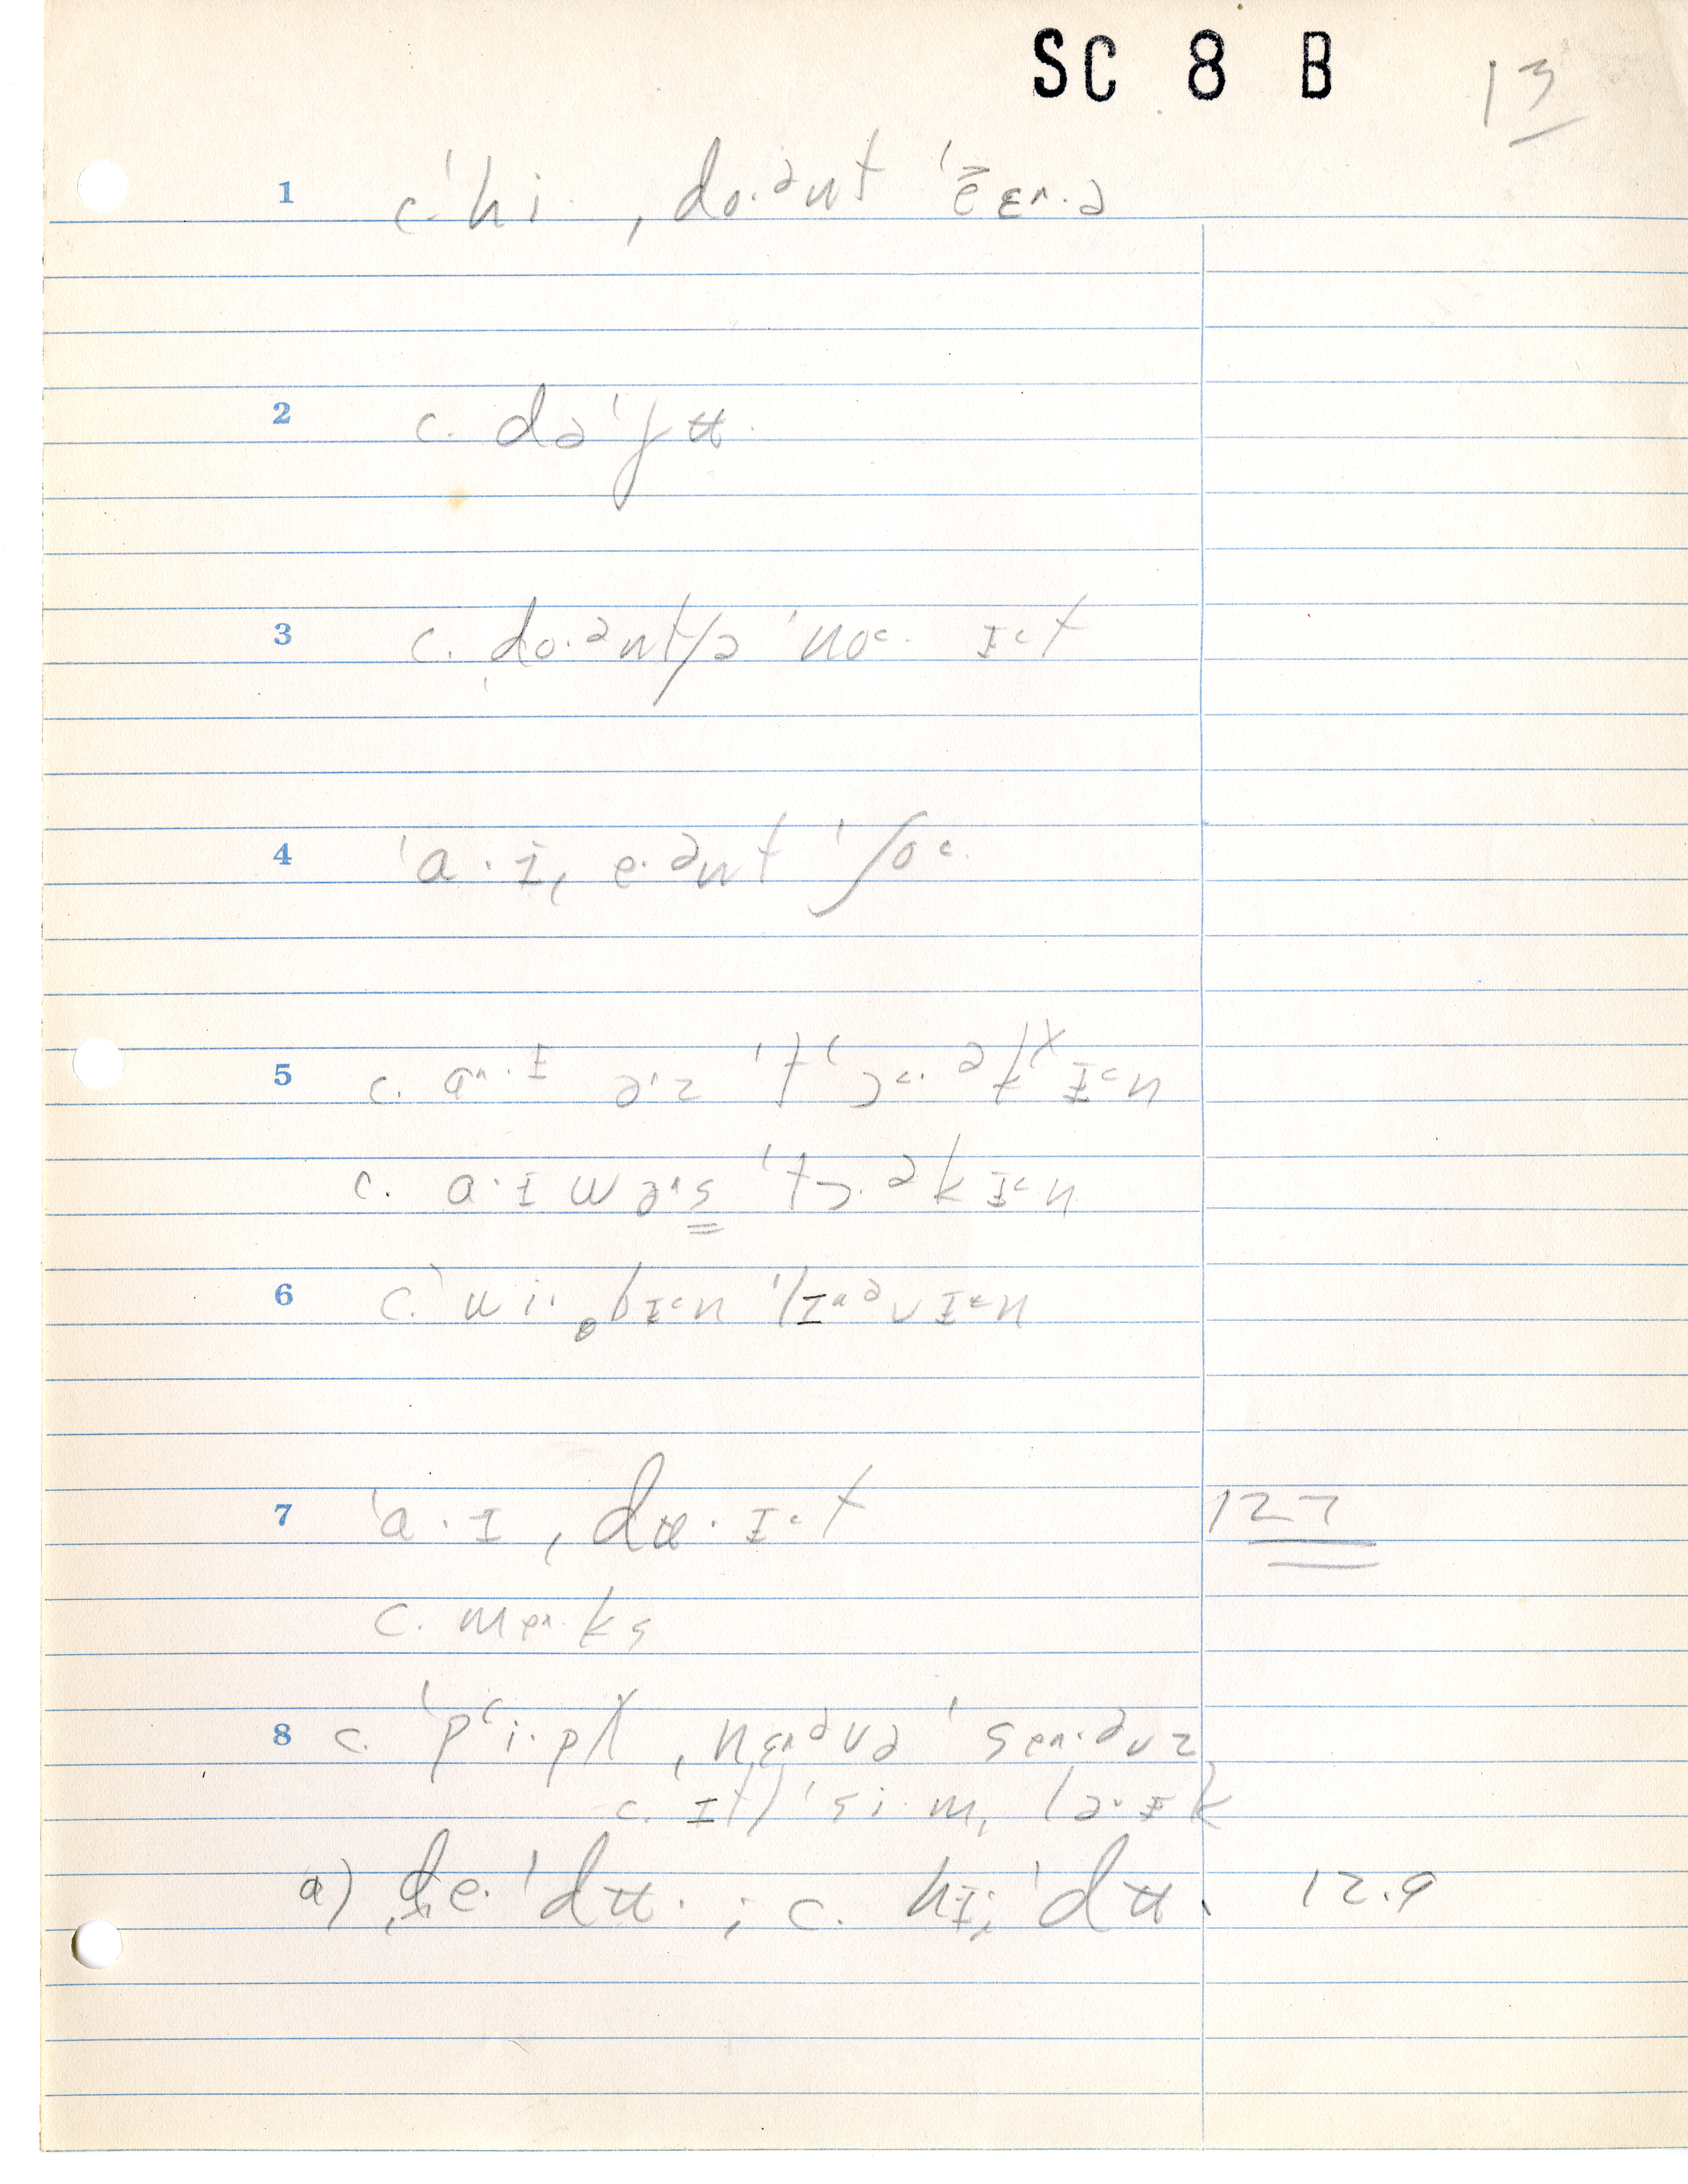 SC 8 B 13
1 c. ˈhi·, do·ənt ˈc̄ɛ^·ə
2 c. dəˈjʉ·
3 c. do·ənt ʃə ˈno˂· ɪ˂t
4 ˈa·ɪ, e·ənt ˈʃo˂·
5 c. a^·ɪ ə˞z ˈt̗ʻɔ˂·ət̬ɪ˂n
c. a·ɪ wə˞s ˈt̗ɔ·əkɪ˂n
6 c. ˈwi·, bɪ˂n ˈlɪ^əvɪ˂n
7 ˈa·ɪ, dʉ·ɪ˂t 127
c. me^·ks
8 c. ˈpʻi·pɫ, nɛ^əvə ˈse^·əvz
c. ɪt ˈsi·m, la·ɪk
a) de·ˈdʉ·; c. hɪ, ˈdʉ· 12.9